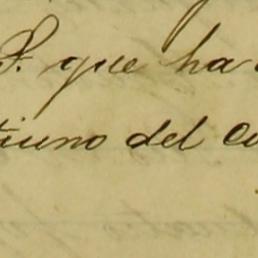 P. que ha
tiuno del cu